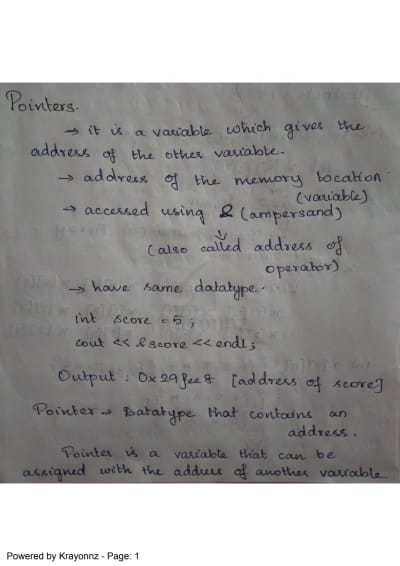 Pointers.
→ it is a variable which gives the
address of the other variable.
→ address of the memory location
(variable)
→ accessed using & (ampersand)
↓
(also called address of
operator)
→ have same datatype.
int score = 5;
cout << &score << endl;
Output : 0x29fee8 [address of score]
Pointer → Datatype that contains an
address.
Pointer is a variable that can be
assigned with the address of another variable
Powered by Krayonnz - Page: 1